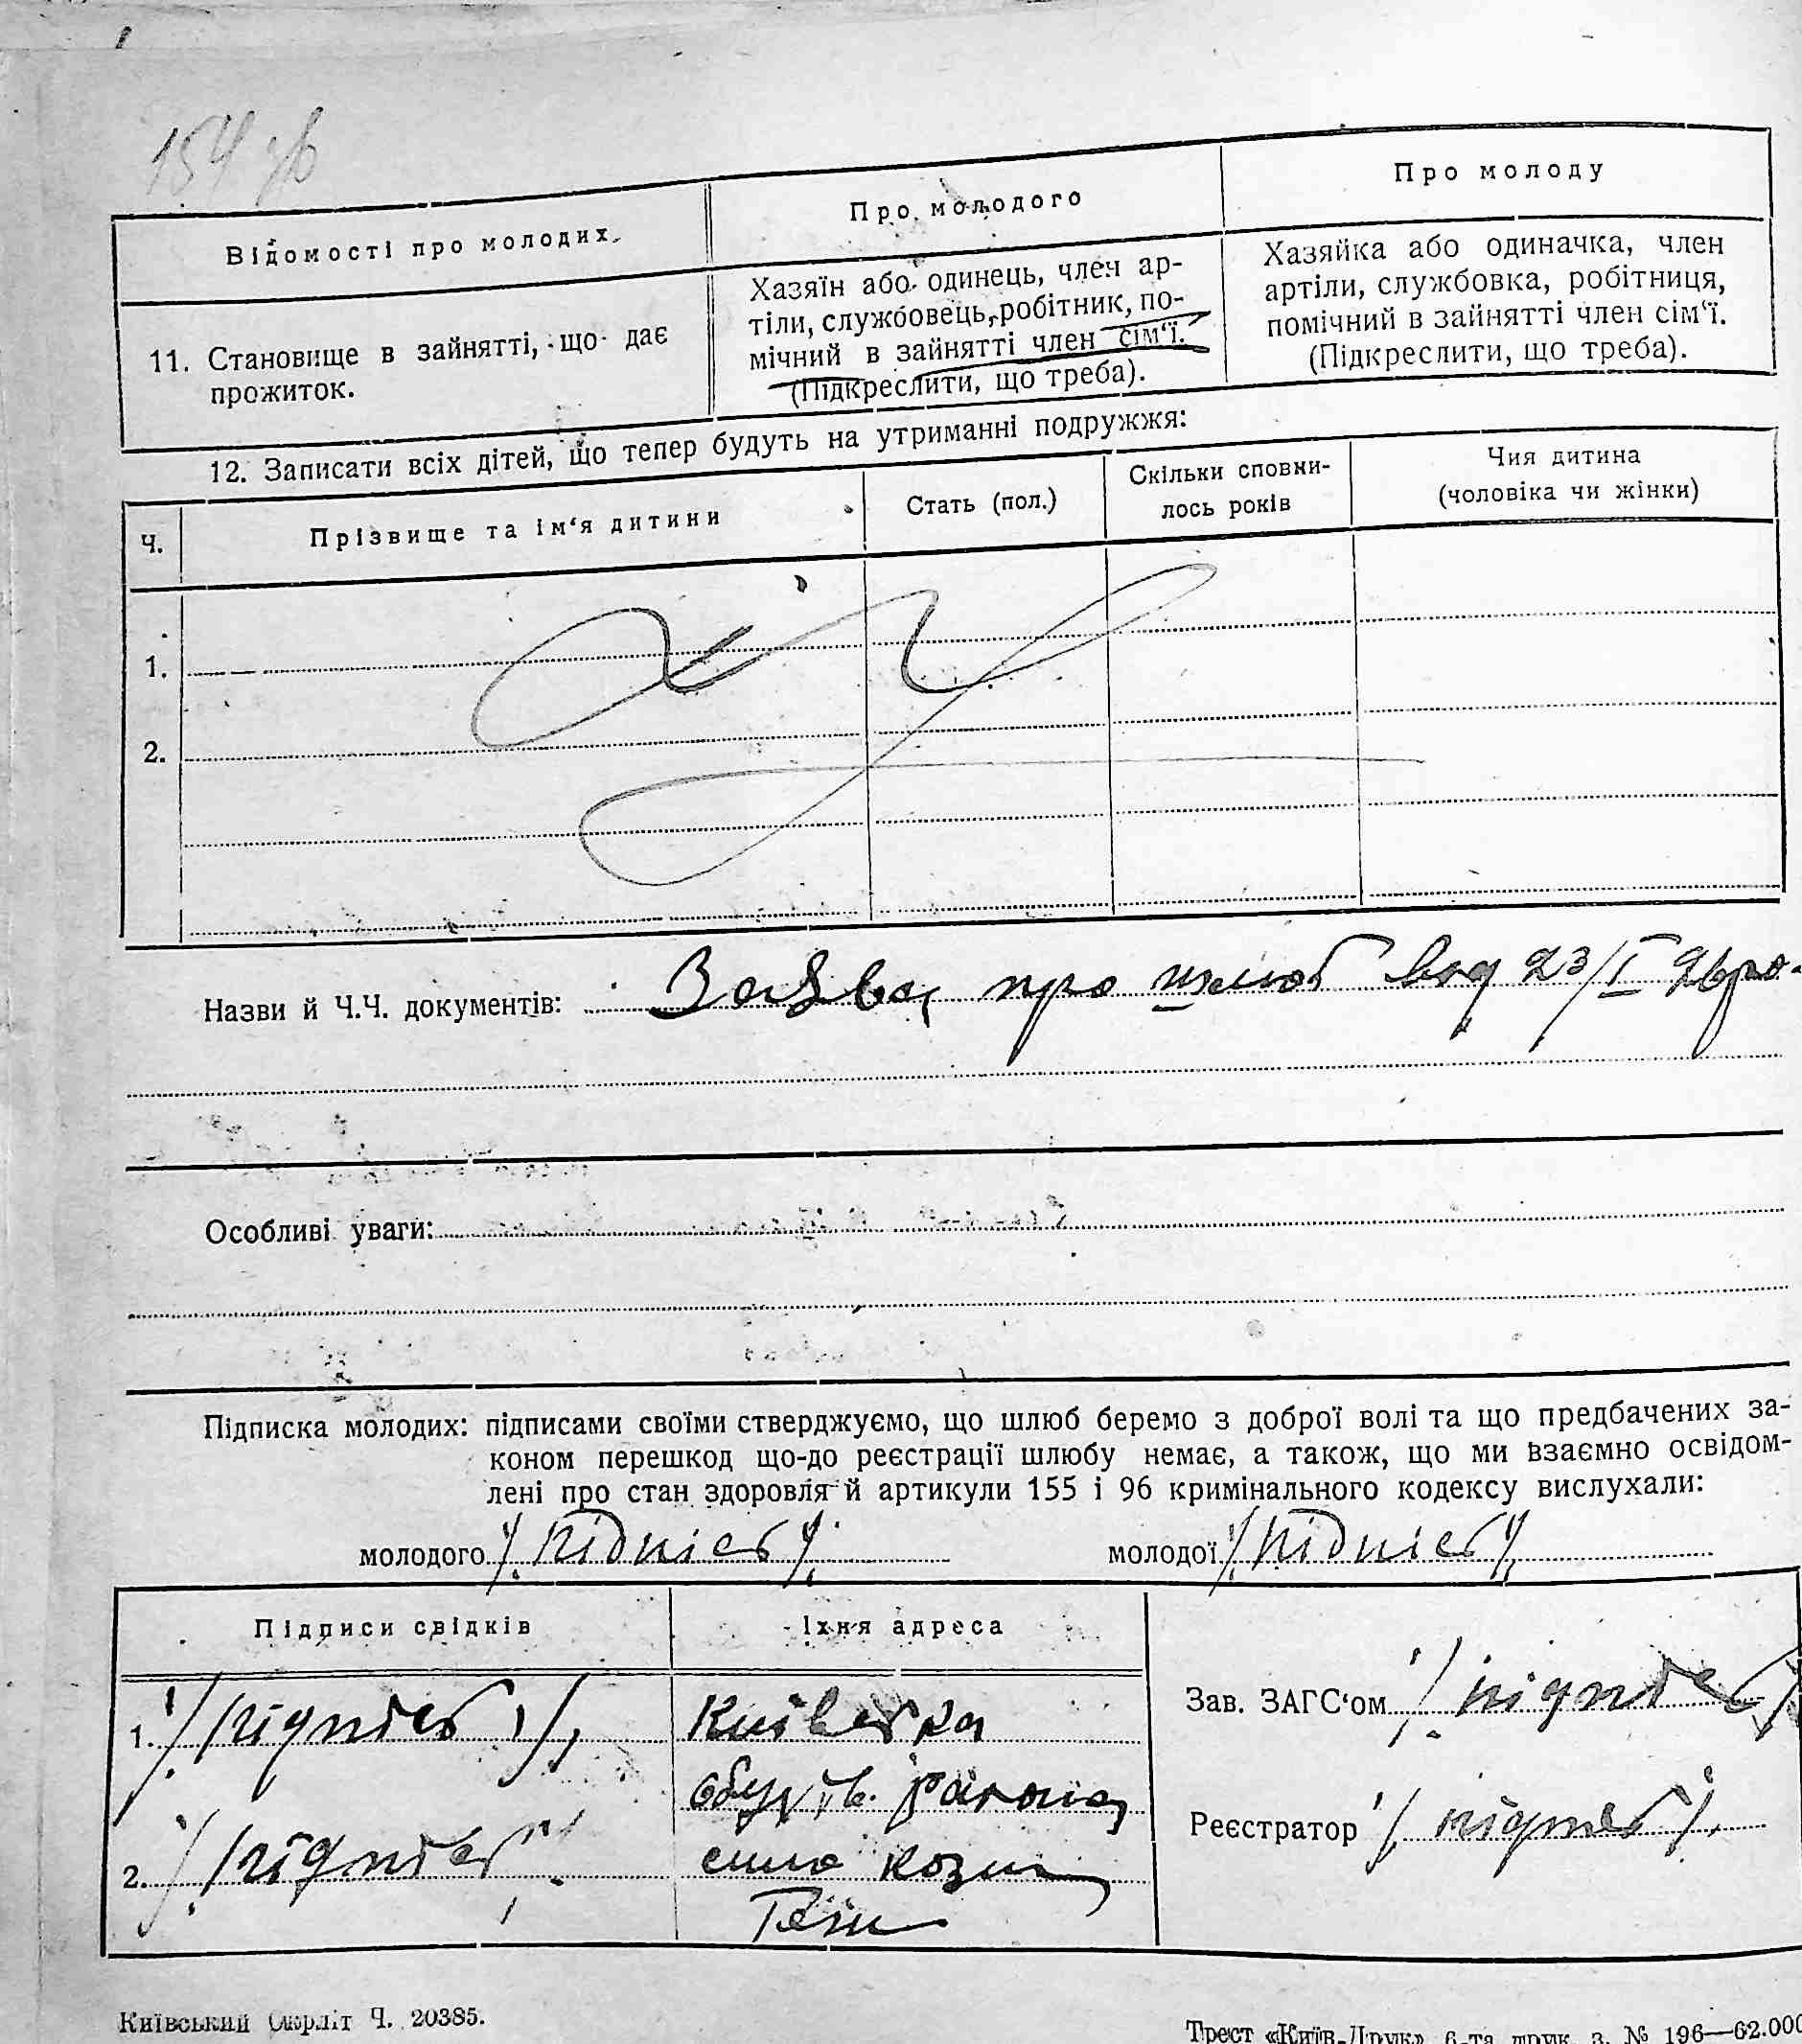 154 зв
Відомості про молодих
Про молодого
Про молоду
11. Становище в зайнятті, що дає
прожиток.
Хазяїн або одинець, член ар-
тіли, службовець, робітник, по-
мічний в зайнятті член сім‘ї.
(Підкреслити, що треба).
Хазяйка або одиначка, член
артіли, службовка, робітниця,
помічний в зайнятті член сім‘ї.
(Підкреслити, що треба).
12. Записати всіх дітей, що тепер будуть на утриманні подружжя:
Ч.
Прізвище та ім‘я дитини
Стать (пол.)
Скільки сповни-
лось років
Чия дитина
(чоловіка чи жінки)
1.
2.
Назви й Ч.Ч. документів: Заява про шлюб від 23/I 26 ро.
Особливі уваги:
Підписка молодих: підписами своїми стверджуємо, що шлюб беремо з доброї волі та що предбачених за-
коном перешкод що-до реєстрації шлюбу немає, а також, що ми взаємно освідом-
лені про стан здоровля й артикули 155 і 96 кримінального кодексу вислухали:
молодого /підпис/ молодої /підпис/
Підписи свідків
Їхня адреса
1. /підпис/
Київська
Обухів. района
2. /підпис/
село Кози
Теж
Зав. ЗАГС‘ом /підпис/
Реєстратор /підпис/.
Київський Окрліт Ч. 20385.
Трест «Київ-Друк» 6-та друк. з. № 196—62.000